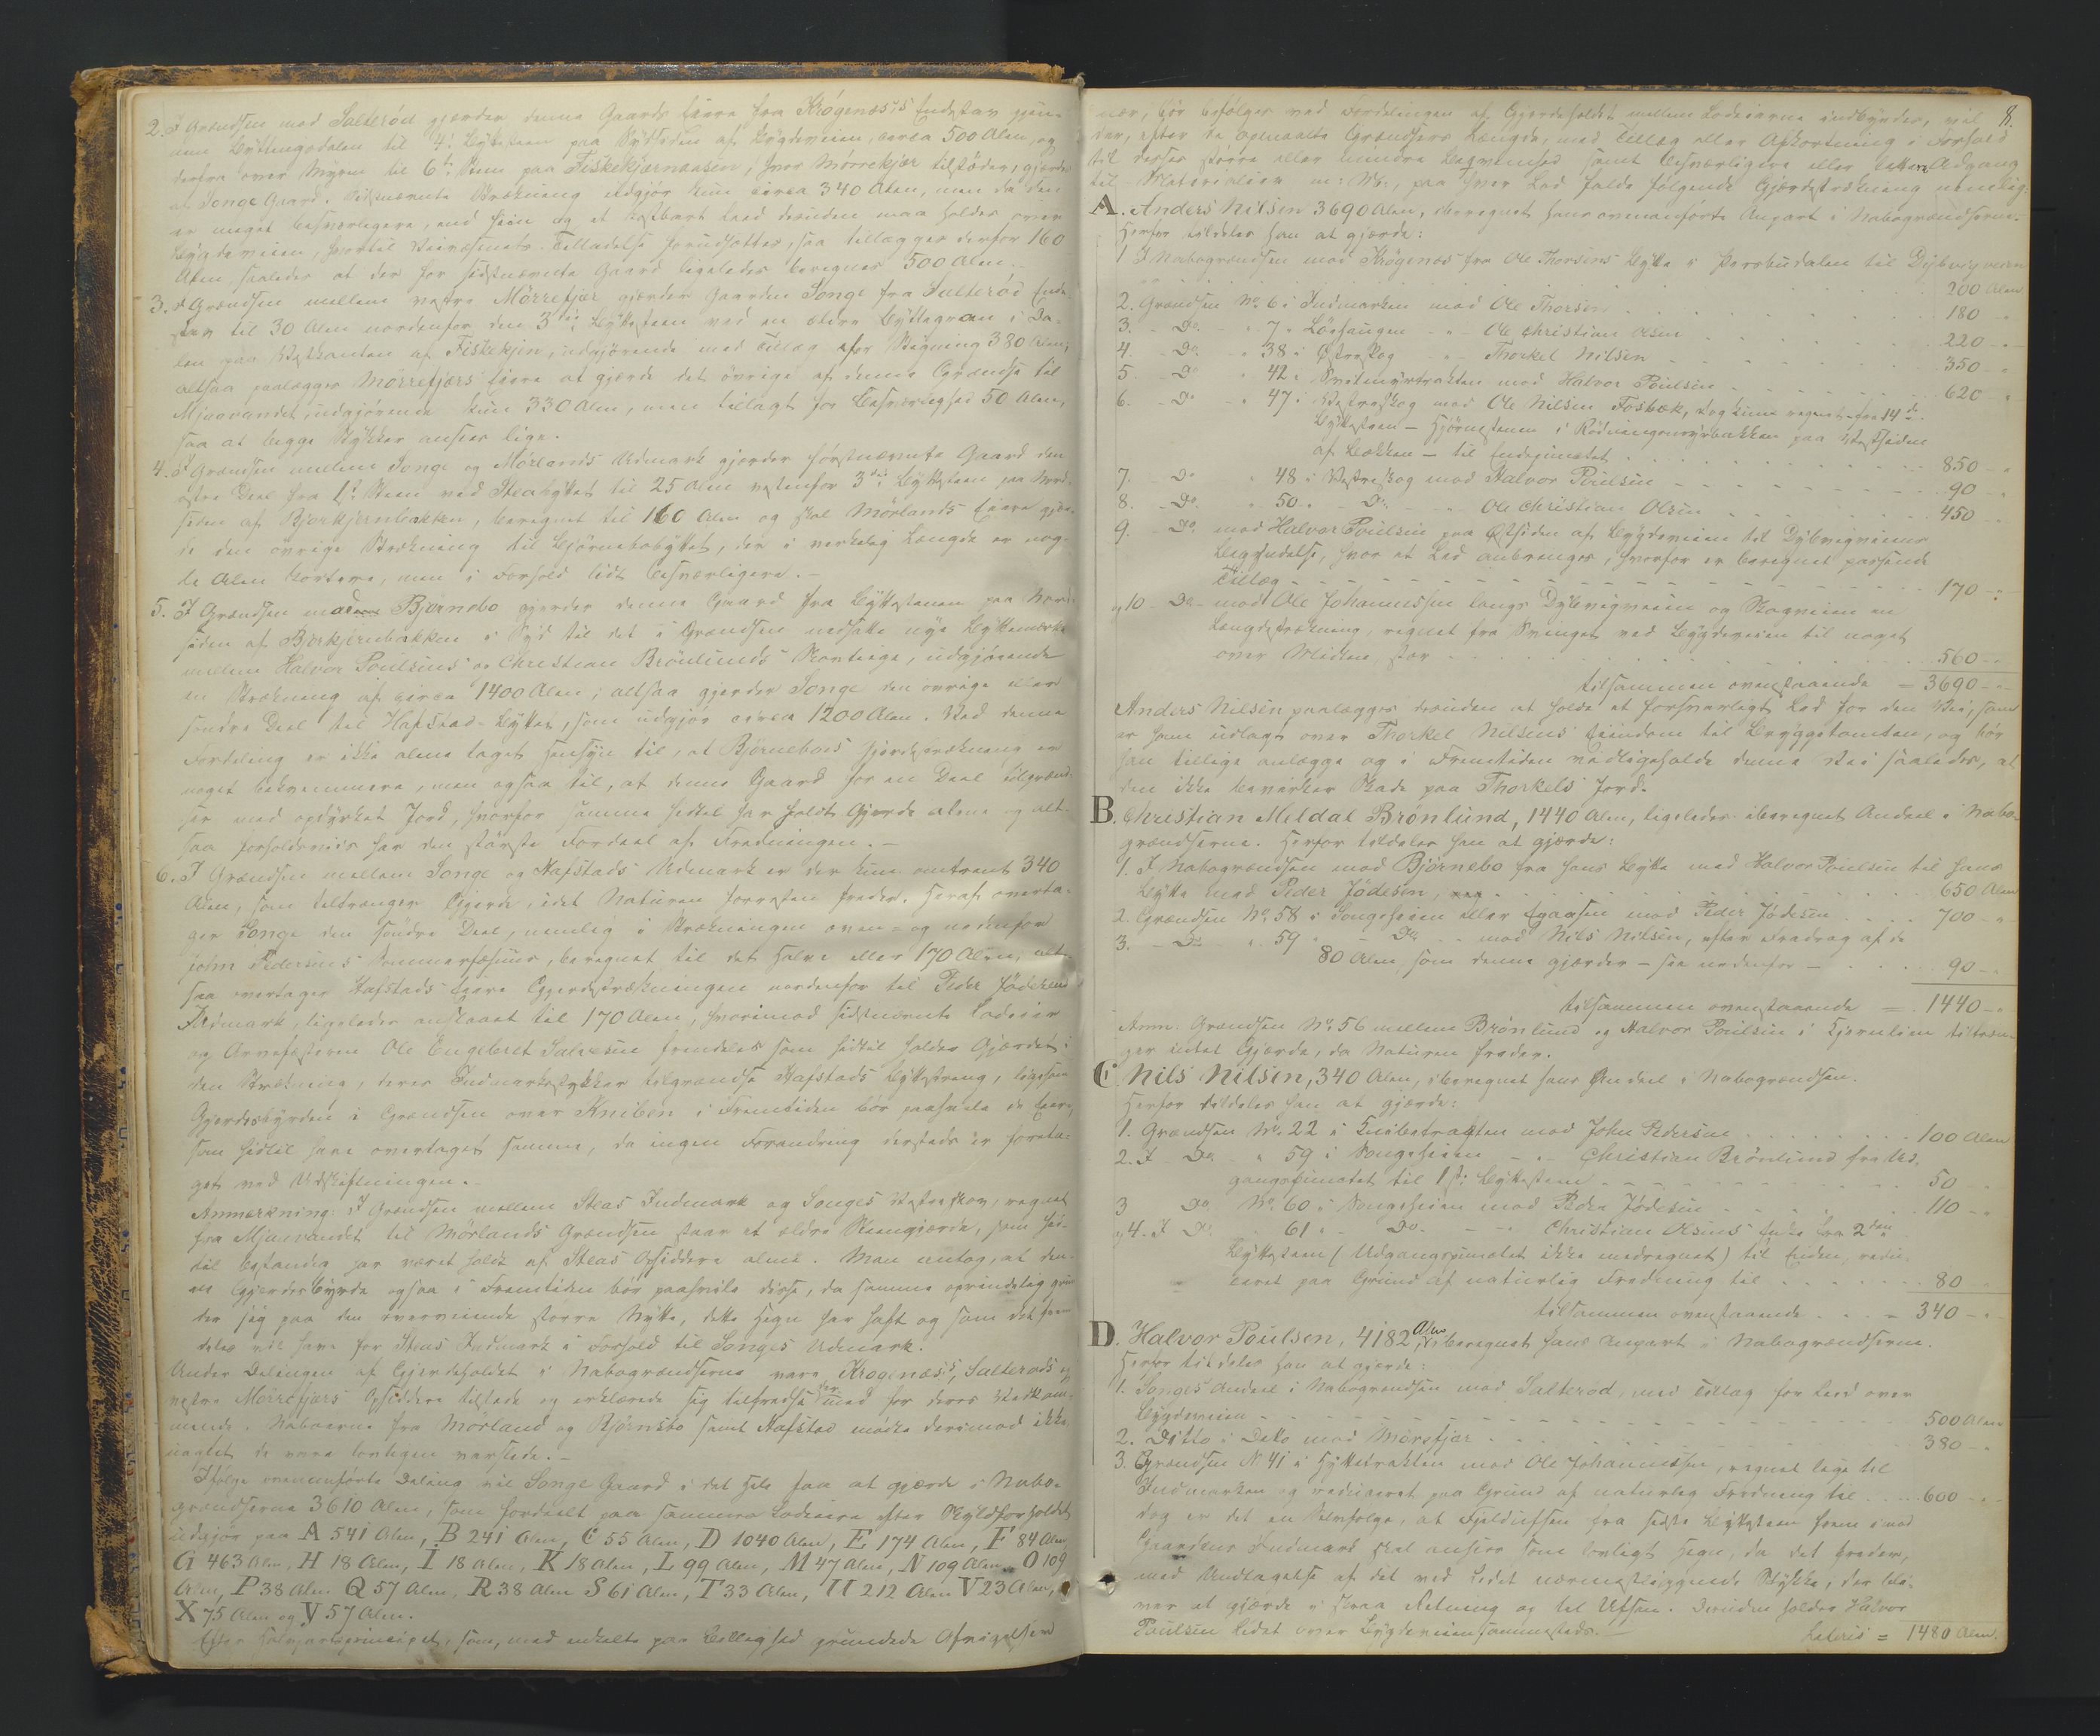 2. I Grændsen med Salterød gjerder denne Gaards Eiere fra Krøgenæs's Endestav gjen-
nem Byttingsdalen til 4de Byttesteen paa Sydsiden af Bygdeveien, circa 500 Alen, og
derfra over Myren til 6te Steen paa Fiskekjernaasen, hvor Mørrekjær tilstøder, gjerder
at Songe Gaard. Sidstnævnte Strækning udgjør kun circa 340 Alen, men da den
er meget besværligere, end hiin og et kostbart Led desuden maa holdes over
Bygdeveien, hvortil Veivæsenets Tilladelse forudsættes, saa tillægges derfor 160
Alen saaledes at der for sidstnævnte Gaard ligeledes beregnes 500 Alen.
3. I Grændsen mellem vestre Mörrefjær gjerder Gaarden Songe fra Salterød Ende-
stav til 30 Alen nordenfor den 3die Byttesteen ved en større Byttegran i Da-
len paa Vestkanten af Fiskekjern, udgjörende med Tillæg efter Stigning 380 Alen,
altsaa paalægges Mörrefjærs Eiere at gjerde det övrige af denne Grændse til
Mjaavandet, udgjörende kun 330 Alen, men tillagt for Besværlighed 50 Alen,
saa at begge Stykker ansees lige.
4. I Grændsen mellem Songe og Mörlands Udmark gjerder førstnævnte Gaard den
østre Deel fra 1ste Steen ved Steabyttet til 25 Alen vestenfor 3die Byttesteen paa Nord-
siden af Bjorkjernbakken, beregnet til 160 Alen og skal Mörlands Eiere gjer-
de den övrige Strækning til Björnebobyttet, der i verkelig Længde er nog-
le Alen kortere, men i Forhold lidt besværligere.
5. I Grændsen med Björnebo gjerder denne Gaard fra Byttestenen paa Nord-
siden af Bjorkjernbakken i Syd til det i Grændsen nedsatte nye Byttemærke
mellem Halvor Poulsens og Christian Brönlunds Skovteige, udgjörende
en Strækning af circa 1400 Alen; altsaa gjerder Songe den övrige eller
söndre Deel til Hafstad-Byttet, som udgjör circa 1200 Alen. Ved denne
Fordeling er ikke alene taget Hensyn til, at Björnebos Gjerdestrækning er
noget bekvemmere, men ogsaa til, at denne Gaard for en Deel tilgrænd-
ser med opdyrket Jord, hvorfor samme hidtil har holdt Gjerde alene og alt-
saa forholdsviis har den störste Fordeel af Fredningen.
6. I Grændsen mellem Songe og Hafstads Udmark er der kun omtrent 340
Alen, som tiltrænger Gjerde, idet Naturen forresten freder. Heraf overta-
ger Songe den söndre Deel, nemlig i Strækningen oven- og nedenfor
John Pedersens Sommerfæhuus, beregnet til det halve eller 170 Alen, alt-
saa overtager Hafstads Eiere Gjerdestrækningen nordenfor til Peder Jödesens
Indmark, ligeledes anslaaet til 170 Alen, hvorimod sidstnævnte Lodeier
og Arvefæsteren Ole Engebret Salvesen fremdeles som hidtil holder Gjærdet i
den Strækning, deres Indmarksstykker tilgrændse Hafstads Byttestreng, ligesom
Gjerdesbyrden i Grændsen over Kniben i Fremtiden bör paahvile de Eiere,
som hidtil have overtaget samme, da ingen Forandring dersteds er foreta-
get ved Udskiftningen.
Anmærkning: I Grændsen mellem Steas Indmark og Songes Vestreskov, regnet
fra Mjaavandet til Mörlands Grændsen staar et ældre Steengjærde, som hid-
til bestandig har været holdt af Steas Opsiddere alene. Man antog, at den-
ne Gjerdesbyrde ogsaa i Fremtiden bör paahvile disse, da samme oprindelig grun-
der sig paa den overveiende större Nytte, dette Hegn har haft og som det frem-
deles vil have for Steas Indmark i Forhold til Songes Udmark.
Under Delingen af Gjerdeholdet i Nabogrændserne vare Krogenæs's, Salteröds og
vestre Mörrefjærs Opsiddere tilstede og erklærede sig tilfredse med for deres Vedkom-
mende. Naboerne fra Mörland og Björnebo samt Hafstad mödte derimod ikke
uagtet de vare lovligen varslede.
Ifölge ovenanförte Deling vil Songe Gaard i det Hele faa at gjærde i Nabo-
grændserne 3610 Alen, som fordeelt paa sammes Lodeiere efter Skyldforholdet
udgjör paa A 541 Alen, B 241 Alen, C 55 Alen, D 1040 Alen, E 174 Alen, F 84 Alen,
G 463 Alen, H 18 Alen, I 18 Alen, K 18 Alen, L 99 Alen, M 47 Alen, N 109 Alen, O 109
Alen, P 38 Alen, Q 57 Alen, R 38 Alen S 61 Alen, T 33 Alen, U 212 Alen V 23 Alen,
X 75 Alen og Y 57 Alen.
Efter Halvpartsprincipet, som, med enkelte paa Billighed grundede Afvigelser
8.
ner, bör befölges ved Fordelingen af Gjerdeholdet mellem Lodeierne indbyrdes, vil
der, efter de opmaalte Grændsers Længde, med Tillæg eller Afkortning i Forhold
til deres större eller mindre Begvemhed samt besværligere eller lettere Adgang
til Materialier m: V:, paa hver Lod falde fölgende Gjerdestrækning nemlig:
A. Anders Nilsen 3690 Alen, iberegnet hans ovenanförte Anpart i Nabogrændserne.
Herfor tildeles han at gjærde:
1 I Nabogrændsen med Krögenæs fra Ole Thorsens Bytte i Porsbudalen til Dybvigveien
200 Alen
2. Grændsen No 6 i Indmarken med Ole Thorsen 180 "
3. Do. " 7 " Löohaugen " Ole Christian Olsen 220 "
4. Do. " 38 i Østreskog " Thorkel Nilsen 350 "
5. Do " 42 i Svitmyrtrakten med Halvor Poulsen 620 "
6. Do " 47 i Vestreskog med Ole Nilsen Fosbæk, dog kun regnet fra 14de
Byttesteen – Hjörnestenen i Rödningsmyrbakken paa Vestsiden
af Bækken – til Endepunctet 850 "
7. Do " 48 i Vestreskog med Halvor Poulsen 90 "
8. Do " 50 " Do " Ole Christian Olsen 450
9. Do. med Halvor Poulsen paa Østsiden af Bygdeveien til Dybvigveiens
Begyndelse, hvor et Led anbringes, hvorfor er beregnet passende
Tillæg 170 "
og 10 Do med Ole Johannessen langs Dybvigveien og Skogveien en
Længdestrækning, regnet fra Svinget ved Bygdeveien til noget
over Midten, stor 560 "
tilsammen ovenstaaende = 3690 "
Anders Nilsen paalægges desuden at holde et forsvarligt Led for den Vei, som
er ham udlagt over Thorkel Nilsens Eiendom til Bryggetomten, og bör
han tillige anlægge og i Fremtiden vedligeholde denne Vei saaledes, at
den ikke bevirker Skade paa Thorkels Jord.
B. Christian Meldal Brönlund, 1440 Alen, ligeledes iberegnet Andeel i Nabo-
grændserne. Herfor tildeles han at gjærde:
1. I Nabogrændsen med Björnebo fra hans Bytte med Halvor Poulsen til hans
Bytte med Peder Jödesen, 650 Alen
2. Grændsen No 58 i Songeheien eller Egaasen med Peder Jödesen 700 "
3. Do " 59 " Do " med Nils Nilsen, efter Fradrag af de
80 Alen, som denne gjærder – see nedenfor – 90 "
tilsammen ovenstaaende = 1440 "
Anm: Grændsen No 56 mellem Brönlund og Halvor Poulsen i Kjernlien tiltræn-
ger intet Gjærde, da Naturen freder.
C Nils Nilsen, 340 Alen, iberegnet hans Andeel i Nabogrændsen.
Herfor tildeles han at gjærde:
1. Grændsen No. 22 i Knibetrakten med John Pedersen 100 Alen
2. I Do. " 59 i Songeheien " Christian Brönlund fra Ud-
gangspunctet til 1ste Byttesteen 50 "
3 Do No. 60 i Songeheien med Peder Jödesen 110 "
og 4. I Do. 61 " Do. " Christian Olsens Enke fra 2den
Byttesteen (Udgangspunctet ikke medregnet) til Enden, redu-
ceret paa Grund af naturlig Fredning til 80
tilsammen ovenstaaende = 340 "
D. Halvor Poulsen, 4182 Alen, iberegnet hans Anpart i Nabogrændserne.
Herfor tildeles han at gjærde:
1. Songes Andeel i Nabogrændsen med Salteröd, med Tillæg for Led over
Bygdeveien 500 Alen
2. Ditto i Dito med Mörefjær 380 "
3. Grændsen No 41 i Hyttetrakten med Ole Johannessen, regnet lige til
Indmarken og reduceret paa Grund af naturlig Fredning til 600 "
dog er det en Selvfölge, at Fjeldufsen fra sidste Byttesteen frem imod
Gaardens Indmark skal ansees som lovligt Hegn, da det freder,
med Undtagelse af det ved Ledet nærmestliggende Stykke, der bli-
ver at gjærde i skraa Retning op til Ufsen. Desuden holder Halvor
Poulsen Ledet over Bygdeveien sammesteds.
Lateris = 1480 Alen.